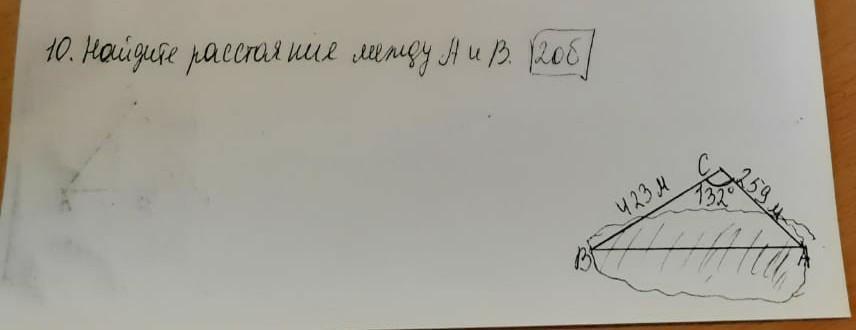 10. Найдите расстояние между А и В. 20б
C
423 м
132°
259 м
B
A